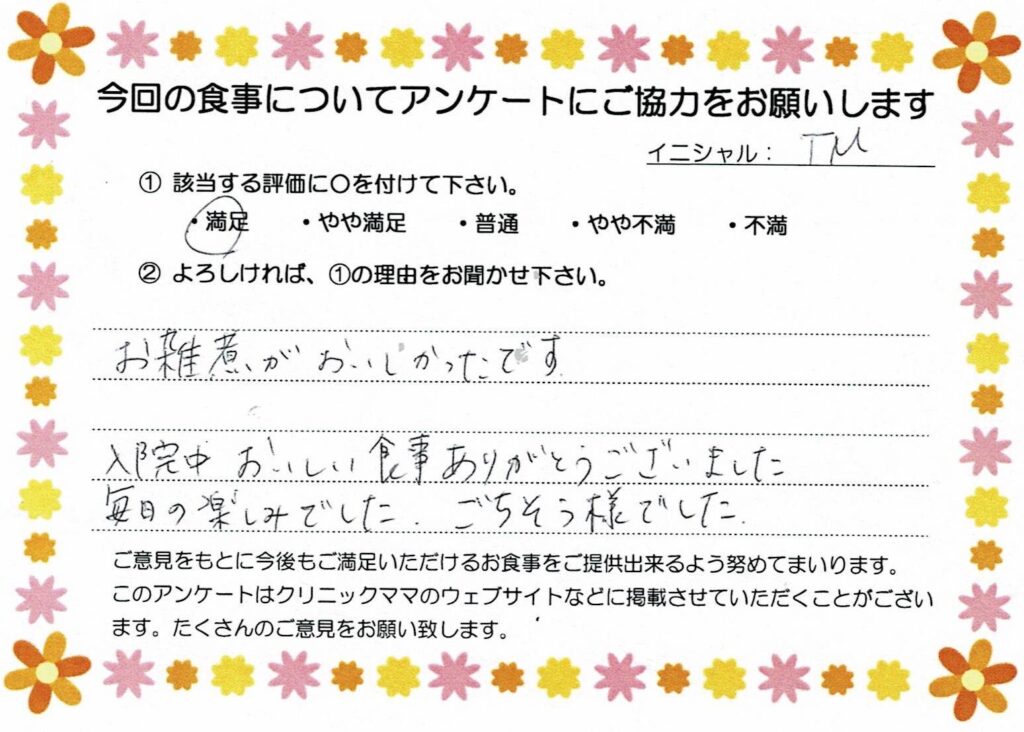 今回の食事についてアンケートにご協力をお願いします
イニシャル： TM
① 該当する評価に〇を付けて下さい。
・満足 ・やや満足 ・普通 ・やや不満 ・不満
② よろしければ、①の理由をお聞かせ下さい。
お雑煮がおいしかったです
入院中 おいしい食事ありがとうございました
毎日の楽しみでした. ごちそう様でした.
ご意見をもとに今後もご満足いただけるお食事をご提供出来るよう努めてまいります。
このアンケートはクリニックママのウェブサイトなどに掲載させていただくことがござい
ます。たくさんのご意見をお願い致します。